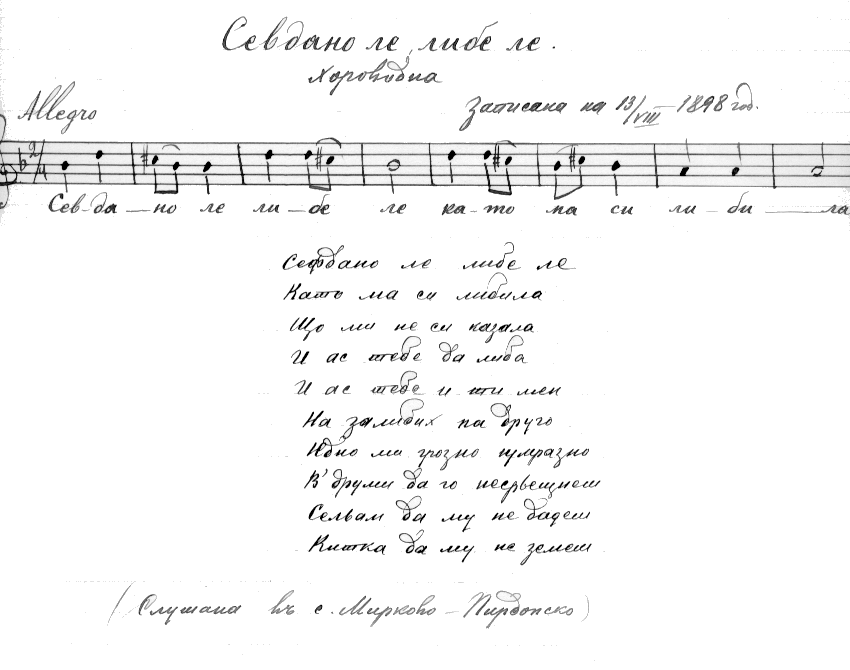 Севдано ле, либе ле.
Хороводна
Allegro
Записана на 13/VIII 1898 год.
2/4
Сев-да-но ле ли-бе ле ка-то ма си ли-би-ла
Севдано ле либе ле
Като ма си либила
Що ми не си казала
И ас тебе да либа
И ас тебе и ти мен
На залибих на друго
Идно ми грозно нумразно
В' друми да го несрьещнеш
Сельам да му не дадеш
Китка да му не земеш
(Слушана въ с. Мирково - Пирдопско)